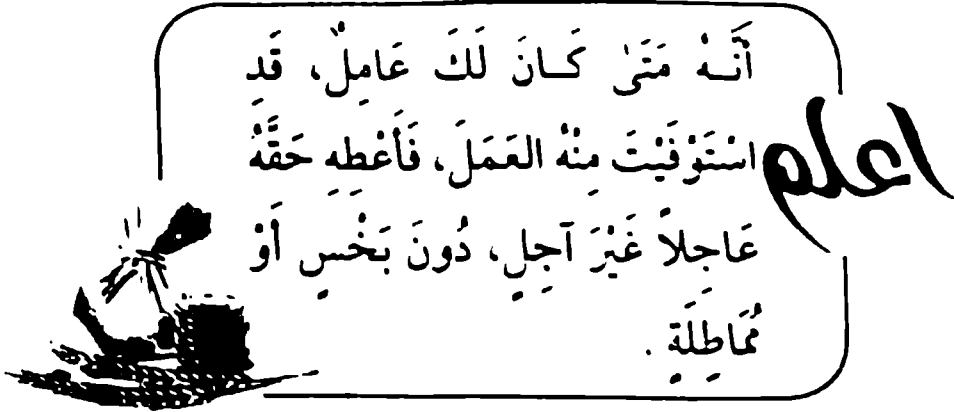 اعلم
أَنَّـهُ مَتَىٰ كَـانَ لَكَ عَامِلٌ، قَدِ
اسْتَوْفَيْتَ مِنْهُ العَمَلَ، فَأَعْطِهِ حَقَّهُ
عَاجِلاً غَيْرَ آجِلٍ، دُونَ بَخْسٍ أَوْ
مُمَاطِلَةٍ .